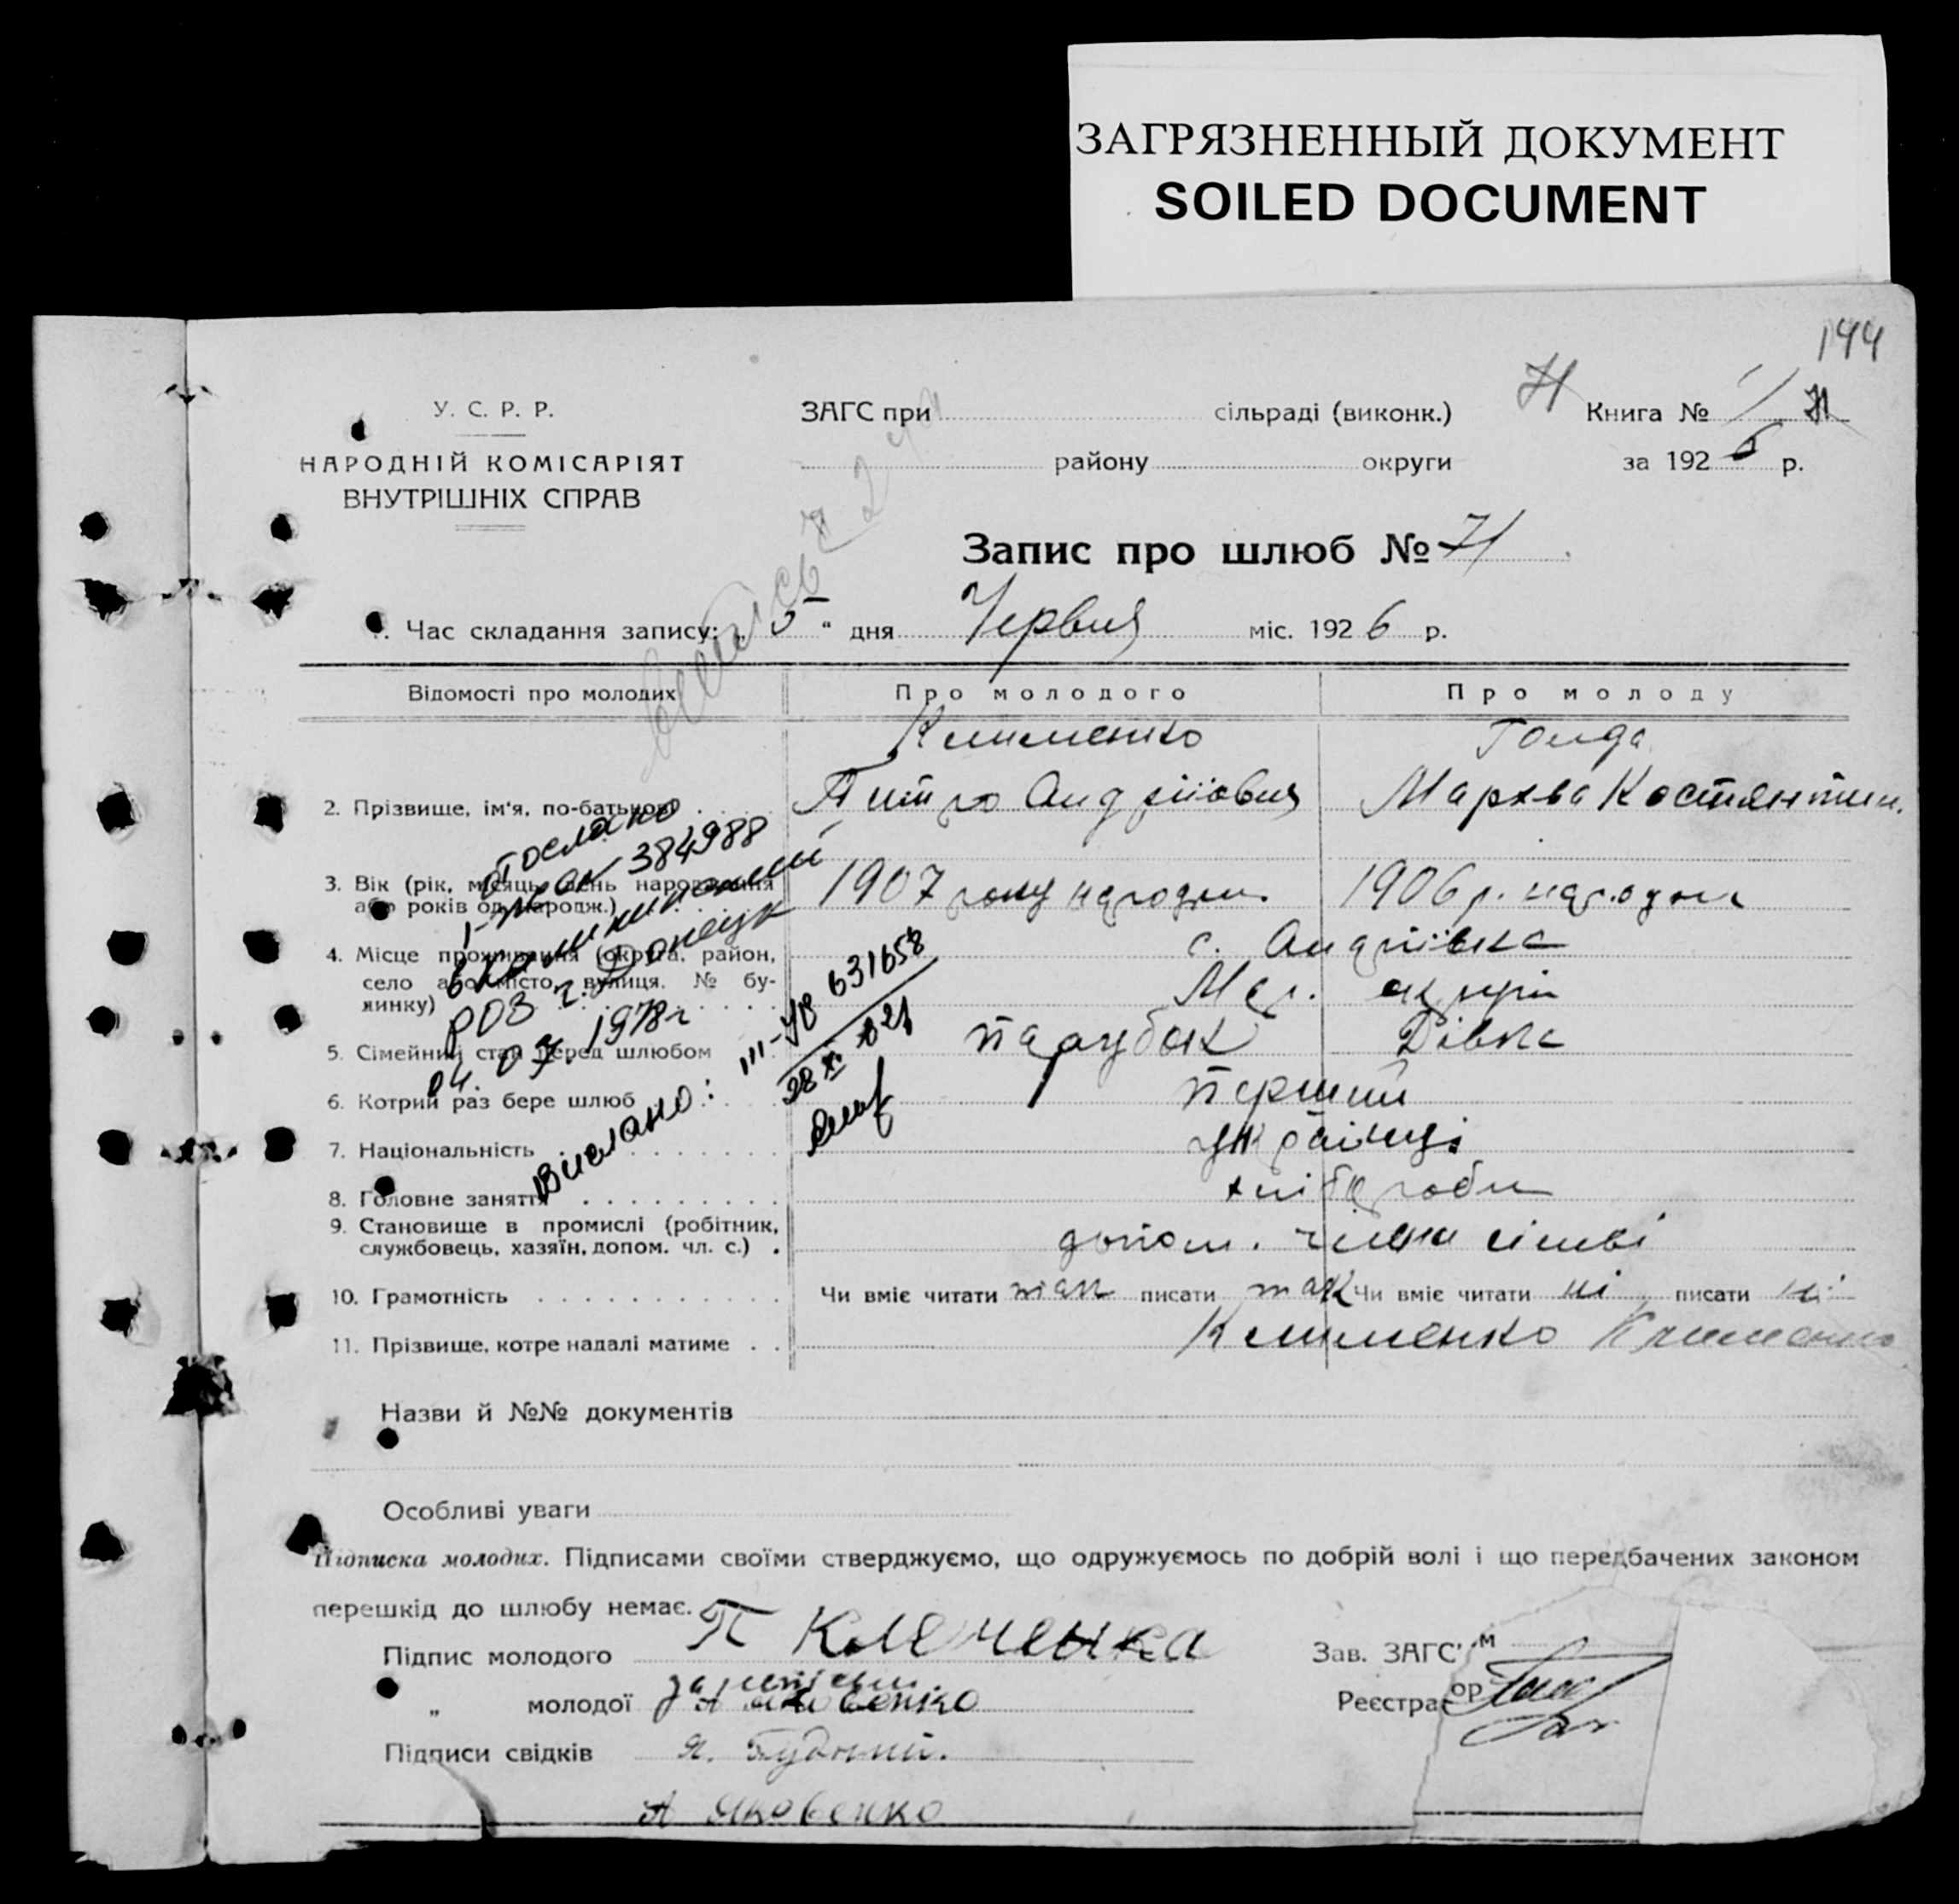 ЗАГРЯЗНЕННЫЙ ДОКУМЕНТ
SOILED DOCUMENT
144
У. С. Р. Р.
НАРОДНІЙ КОМІСАРІЯТ
ВНУТРІШНІХ СПРАВ
ЗАГС при сільраді (виконк.)
району округи
71 Книга № 1 71
за 1926 р.
Запис про шлюб № 71
1. Час складання запису: „ 5 “ дня Червня міс. 1926 р.
Відомості про молодих Про молодого Про молоду
Клименко Гонда
2. Прізвище, ім'я, по-батькові Питро Андрійович Мархва Костянтин.
3. Вік (рік, місяць, день народження або років од народж.) 1907 року народж. 1906 р. народж
4. Місце проживання (округа, район, село або місто, вулиця, № будинку) с. Андріївка
Мар. округи
5. Сімейний стан перед шлюбом парубок Дівка
6. Котрий раз бере шлюб перший
7. Національність українці
8. Головне заняття хлібороби
9. Становище в промислі (робітник, службовець, хазяїн, допом. чл. с.) допом. члени сімьї
10. Грамотність Чи вміє читати так писати так Чи вміє читати ні писати ні
11. Прізвище, котре надалі матиме Клименко Клименко
Послано
384988
в Калининский
РОЗ г. Донецк
04. 07. 1978 г
Вислано: III-УВ 631658
28 XI
Назви й №№ документів
Особливі уваги
Підписка молодих. Підписами своїми стверджуємо, що одружуємось по добрій волі і що передбачених законом
перешкід до шлюбу немає.
Підпис молодого П Клеменка
Зав. ЗАГС'ом
„ молодої А Яковенко
Реєстратор
Підписи свідків Я. Будний.
А Яковенко